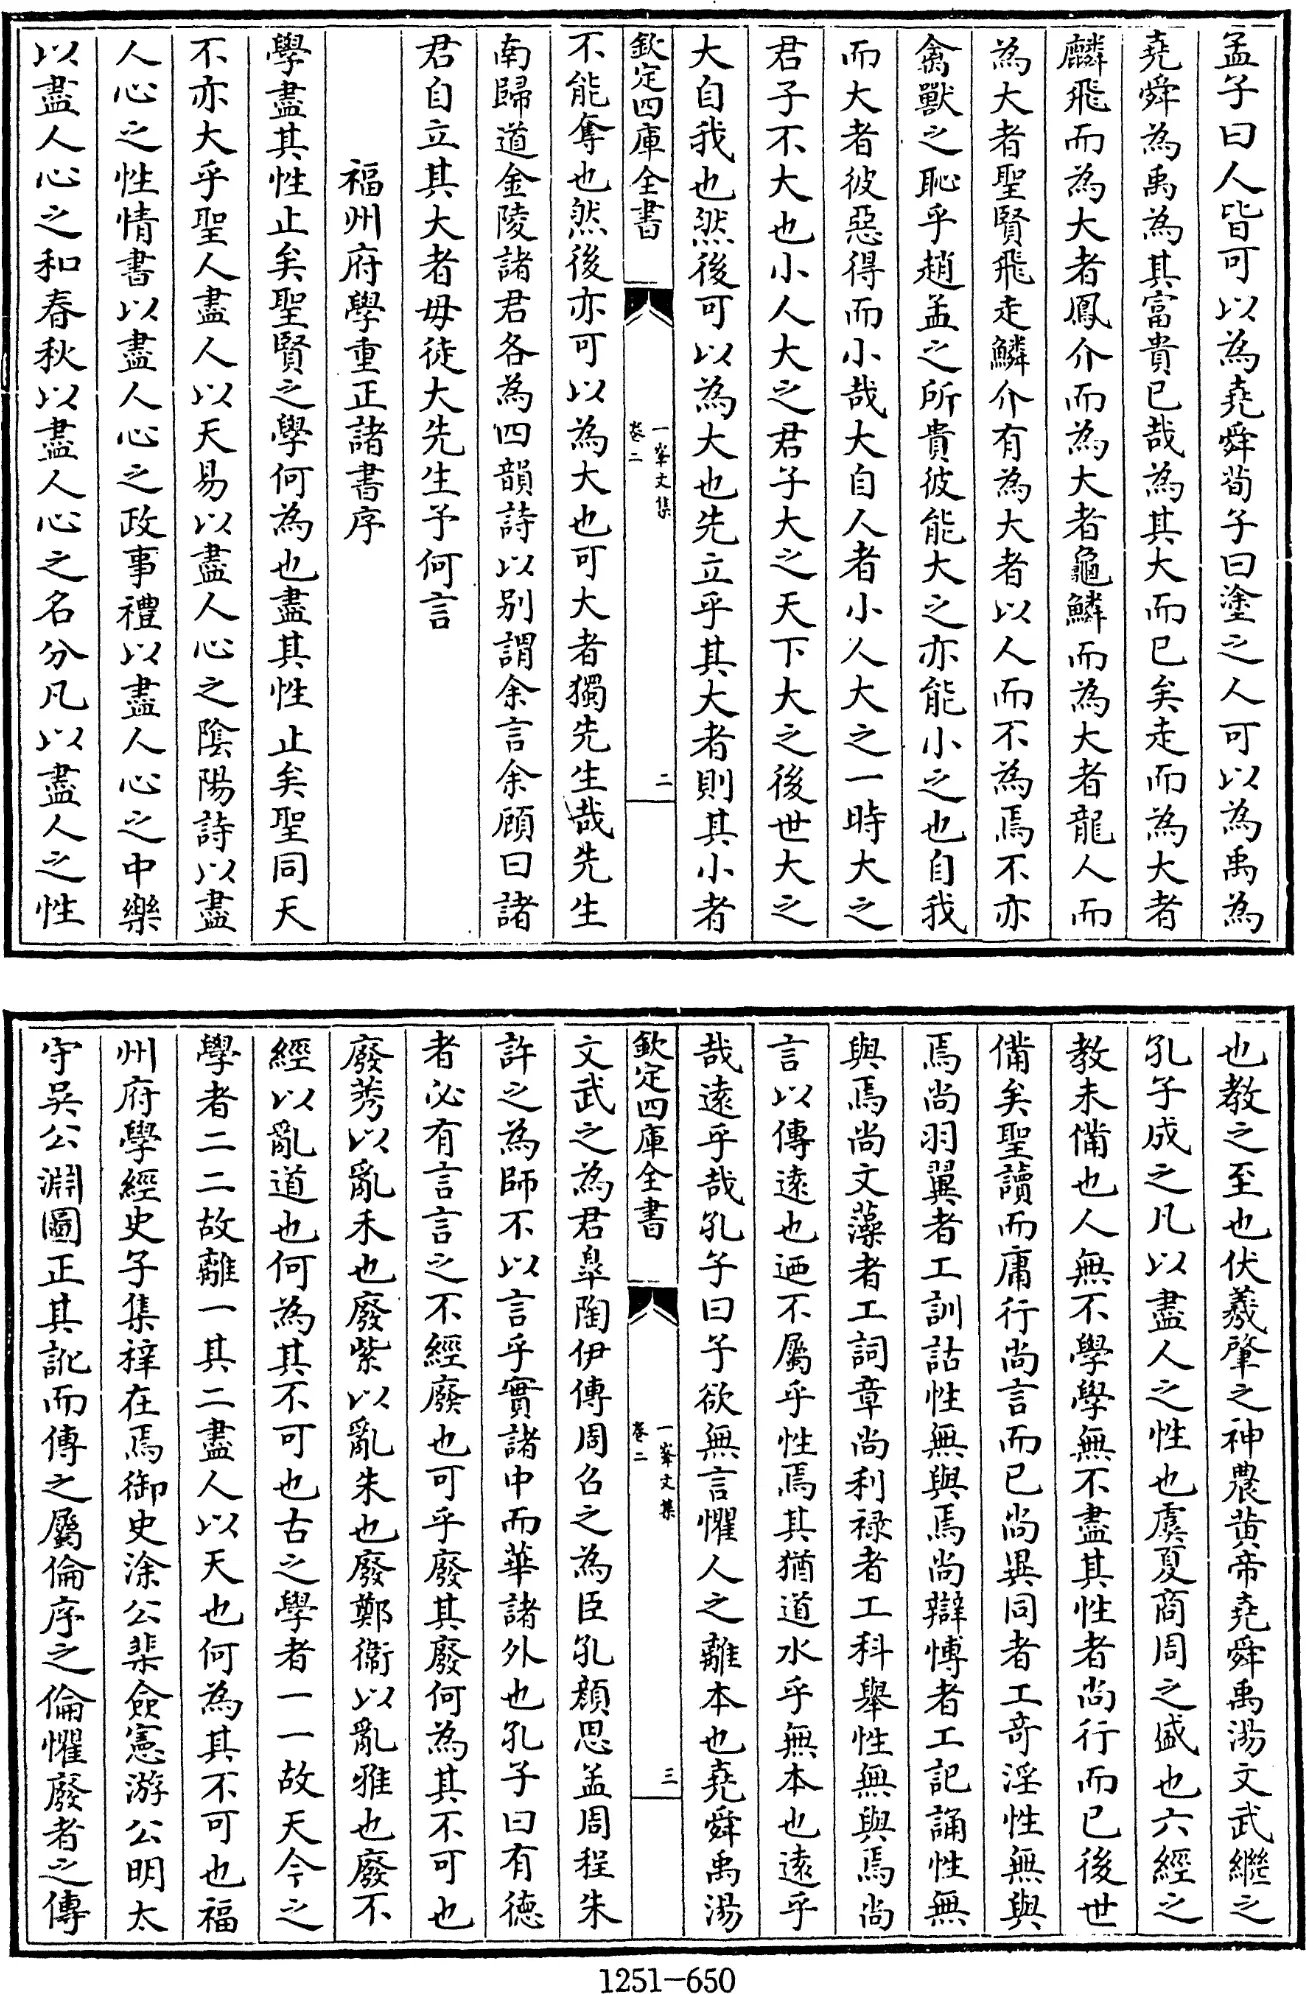 孟子曰人皆可以為堯舜荀子曰塗之人可以為禹為
堯舜為禹為其富貴已哉為其大而已矣走而為大者
麟飛而為大者鳳介而為大者龜鱗而為大者龍人而
為大者聖賢飛走鱗介有為大者以人而不為焉不亦
禽獸之恥乎趙孟之所貴彼能大之亦能小之也自我
而大者彼惡得而小哉大自人者小人大之一時大之
君子不大也小人大之君子大之天下大之後世大之
大自我也然後可以為大也先立乎其大者則其小者
欽定四庫全書
一峯文集
卷二
二
不能奪也然後亦可以為大也可大者獨先生哉先生
南歸道金陵諸君各為四韻詩以別謂余言余顧曰諸
君自立其大者毋徒大先生予何言
福州府學重正諸書序
學盡其性止矣聖賢之學何為也盡其性止矣聖同天
不亦大乎聖人盡人以天易以盡人心之陰陽詩以盡
人心之性情書以盡人心之政事禮以盡人心之中樂
以盡人心之和春秋以盡人心之名分凡以盡人之性
也教之至也伏羲肇之神農黃帝堯舜禹湯文武繼之
孔子成之凡以盡人之性也虞夏商周之盛也六經之
教未備也人無不學學無不盡其性者尚行而已後世
備矣聖讀而庸行尚言而已尚異同者工奇淫性無與
焉尚羽翼者工訓詁性無與焉尚辯博者工記誦性無
與焉尚文藻者工詞章尚利祿者工科舉性無與焉尚
言以傳遠也迺不屬乎性焉其猶道水乎無本也遠乎
哉遠乎哉孔子曰予欲無言懼人之離本也堯舜禹湯
欽定四庫全書
一峯文集
卷二
三
文武之為君皋陶伊傅周召之為臣孔顏思孟周程朱
許之為師不以言乎實諸中而華諸外也孔子曰有德
者必有言言之不經廢也可乎廢其廢何為其不可也
廢莠以亂禾也廢紫以亂朱也廢鄭衛以亂雅也廢不
經以亂道也何為其不可也古之學者一一故天今之
學者二二故離一其二盡人以天也何為其不可也福
州府學經史子集梓在焉御史涂公棐僉憲游公明太
守吳公淵圖正其訛而傳之屬倫序之倫懼廢者之傳
1251-650